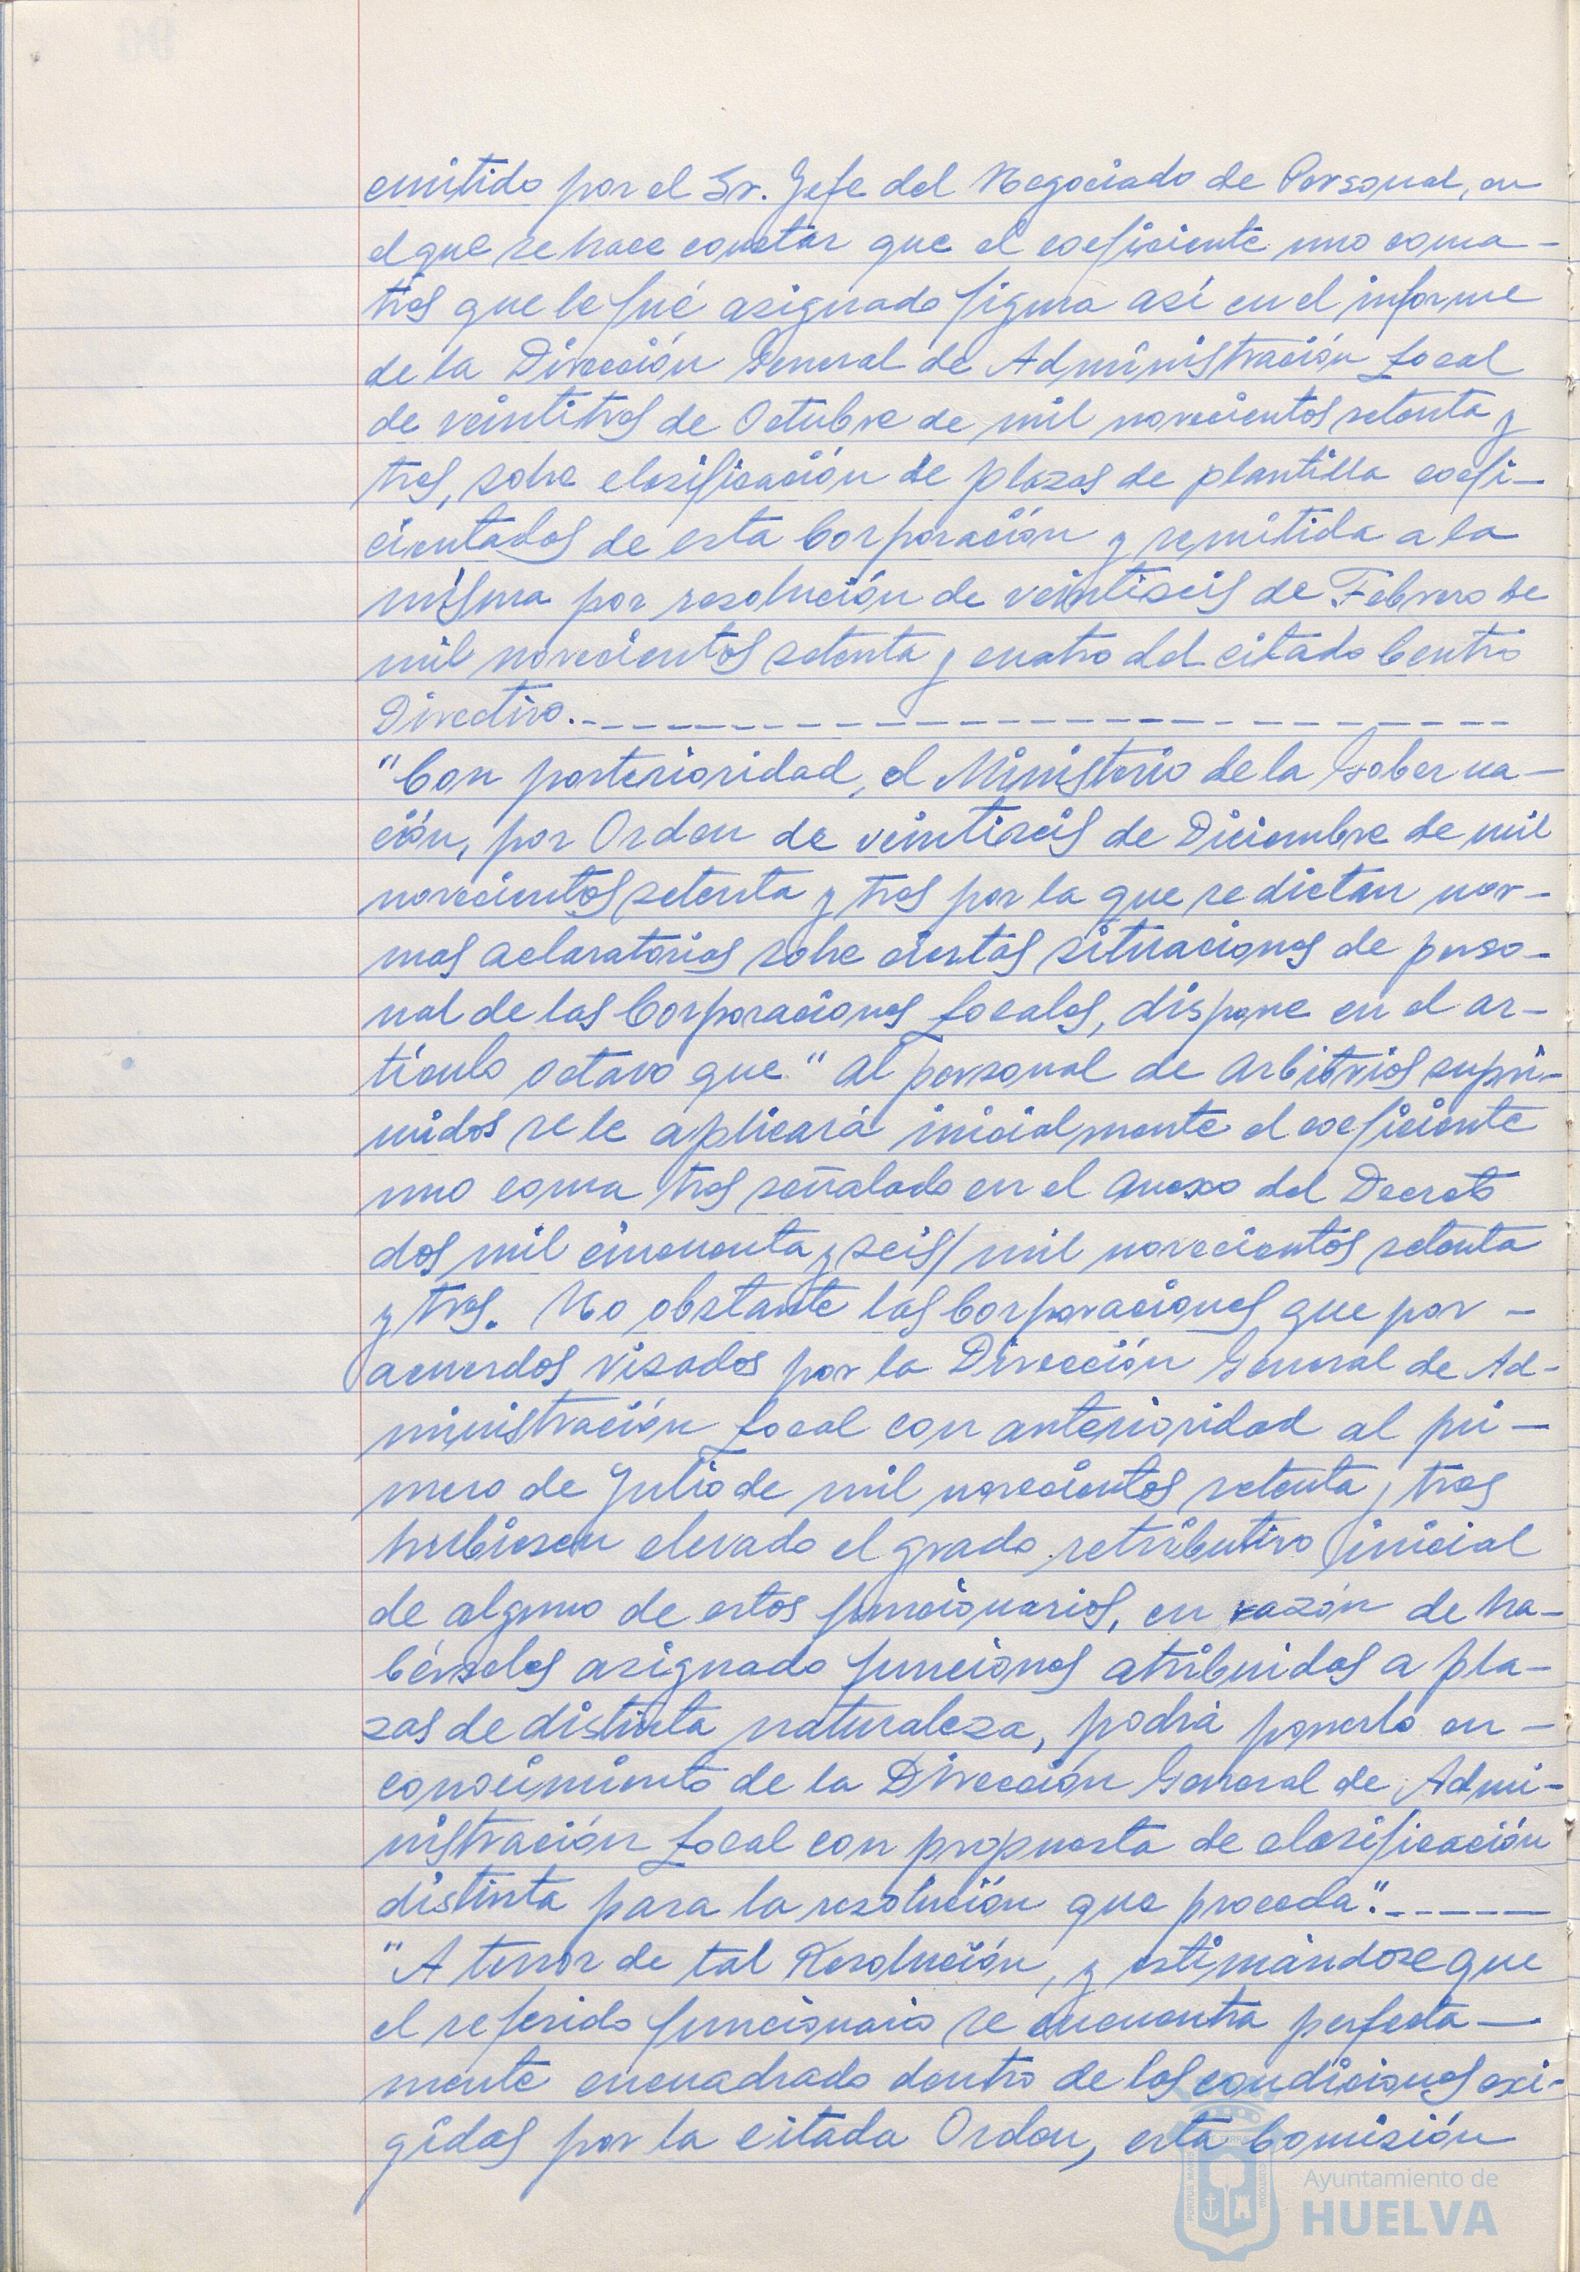 emitido por el Sr. Jefe del Negociado de Personal, en
el que se hace constar que el coeficiente uno coma -
tres que le fué asignado figura así en el informe
de la Dirección General de Administración Local
de veintitres de Octubre de mil novecientos setenta y
tres, sobre clasificación de plazas de plantilla coefi-
cientados de esta Corporación y remitida a la
misma por resolución de veintiseis de Febrero de
mil novecientos setenta y cuatro del citado Centro
Directivo.- - - - - - - - - - - - - - - - - - - - - -
"Con posterioridad, el Ministerio de la Goberna-
ción, por Orden de veintiseis de Diciembre de mil
novecientos setenta y tres por la que se dictan nor-
mas aclaratorias sobre ciertas situaciones de perso-
nal de las Corporaciones Locales, dispone en el ar-
tículo octavo que "al personal de arbitrios supri-
midos se le aplicará inicialmente el coeficiente
uno coma tres señalado en el anexo del Decreto
dos mil cincuenta y seis/mil novecientos setenta
y tres. No obstante las Corporaciones que por -
acuerdos visados por la Dirección General de Ad-
ministración Local con anterioridad al pri-
mero de Julio de mil novecientos setenta y tres
hubiesen elevado el grado retributivo inicial
de alguno de estos funcionarios, en razón de ha-
bérseles asignado funciones atribuidas a pla-
zas de distinta naturaleza, podrá ponerlo en -
conocimiento de la Dirección General de Admi-
nistración Local con propuesta de clasificación
distinta para la resolución que proceda".- - - - - -
"A tenor de tal Resolución, y estimándose que
el referido funcionario se encuentra perfecta-
mente encuadrado dentro de las condiciones exi-
gidas por la citada Orden, esta Comisión
Ayuntamiento de
HUELVA